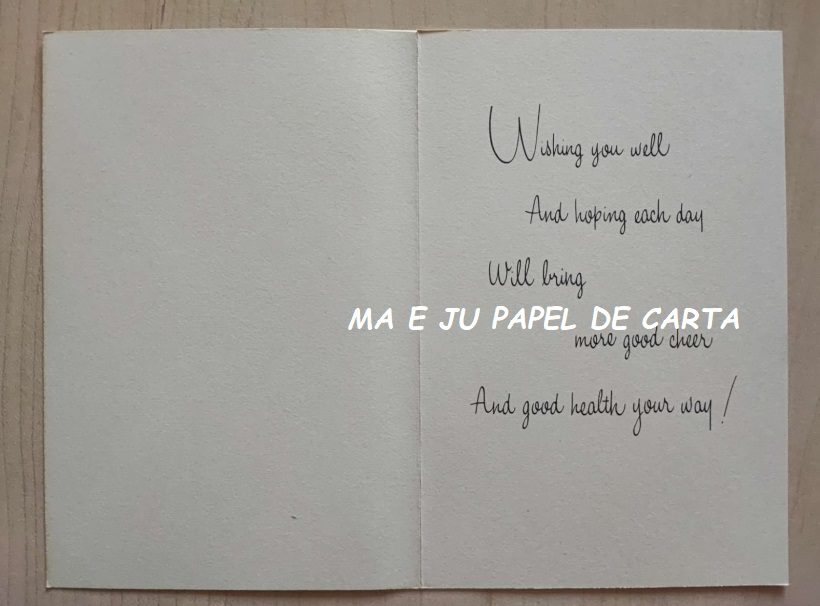 Wishing you well
And hoping each day
Will bring
MA E JU PAPEL DE CARTA
more good cheer
And good health your way!